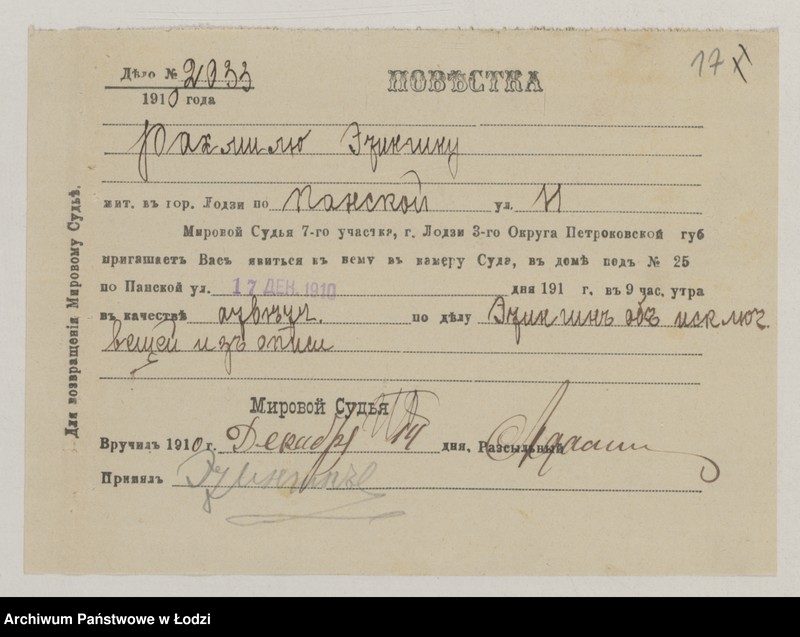 Дѣло № 2033
1910 года
ПОВѢСТКА
17
Рахмилю
жит. въ гор. Лодзи по Панской ул. 11
Мировой Судья 7-го участка, г. Лодзи 3-го Округа Петроковской губ
пригашаетъ Васъ явиться къ нему въ камеру Суда, въ домѣ подъ № 25
по Панской ул. 17 ДЕК. 1910 дня 191 г. въ 9 час. утра
въ качествѣ по дѣлу объ исключ.
вещей изъ описи
Мировой Судья
Вручилъ 1910 г. Декабря 14 дня. Разсыльный
Принялъ
Для возвращенія Мировому Судьѣ.
Archiwum Państwowe w Łodzi